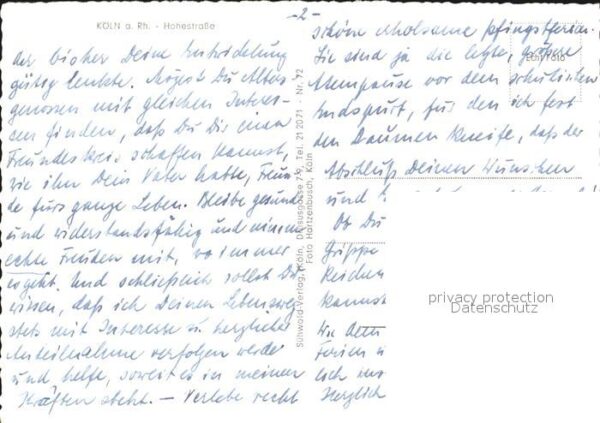 KÖLN a. Rh. - Hohestraße
-2-
der bisher Deine Entwicklung
gütig lenkte. Mögest Du Alters-
genossen mit gleichen Interes-
sen finden, daß Du Dir einen
Freundeskreis schaffen kannst,
wie ihn Dein Vater hatte, Freun-
de fürs ganze Leben. Bleibe gesund
und widerstandsfähig und nimm
echte Freuden mit, wo immer
es geht. Und schließlich sollst Du
wissen, daß ich Deinen Lebensweg
stets mit Interesse u. herzlicher
Anteilnahme verfolgen werde
und helfe, soweit es in meinen
Kräften steht. - Verlebe recht
Sühwald-Verlag, Köln, Drususgasse 7-9, Tel. 21 20 71 - Nr. 72
Foto Hartzenbusch, Köln
schöne erholsame Pfingstferien.
Sie sind ja die letzte, größere
Atempause vor dem schulischen
Endspurt, für den ich fest
den Daumen kneife, daß der
Abschluß Deinen Wünschen
und
Ob Du
Grippe
Reichen
kannst
Wie
Ferien
lich
Herzlich
Echt Foto
privacy protection
Datenschutz